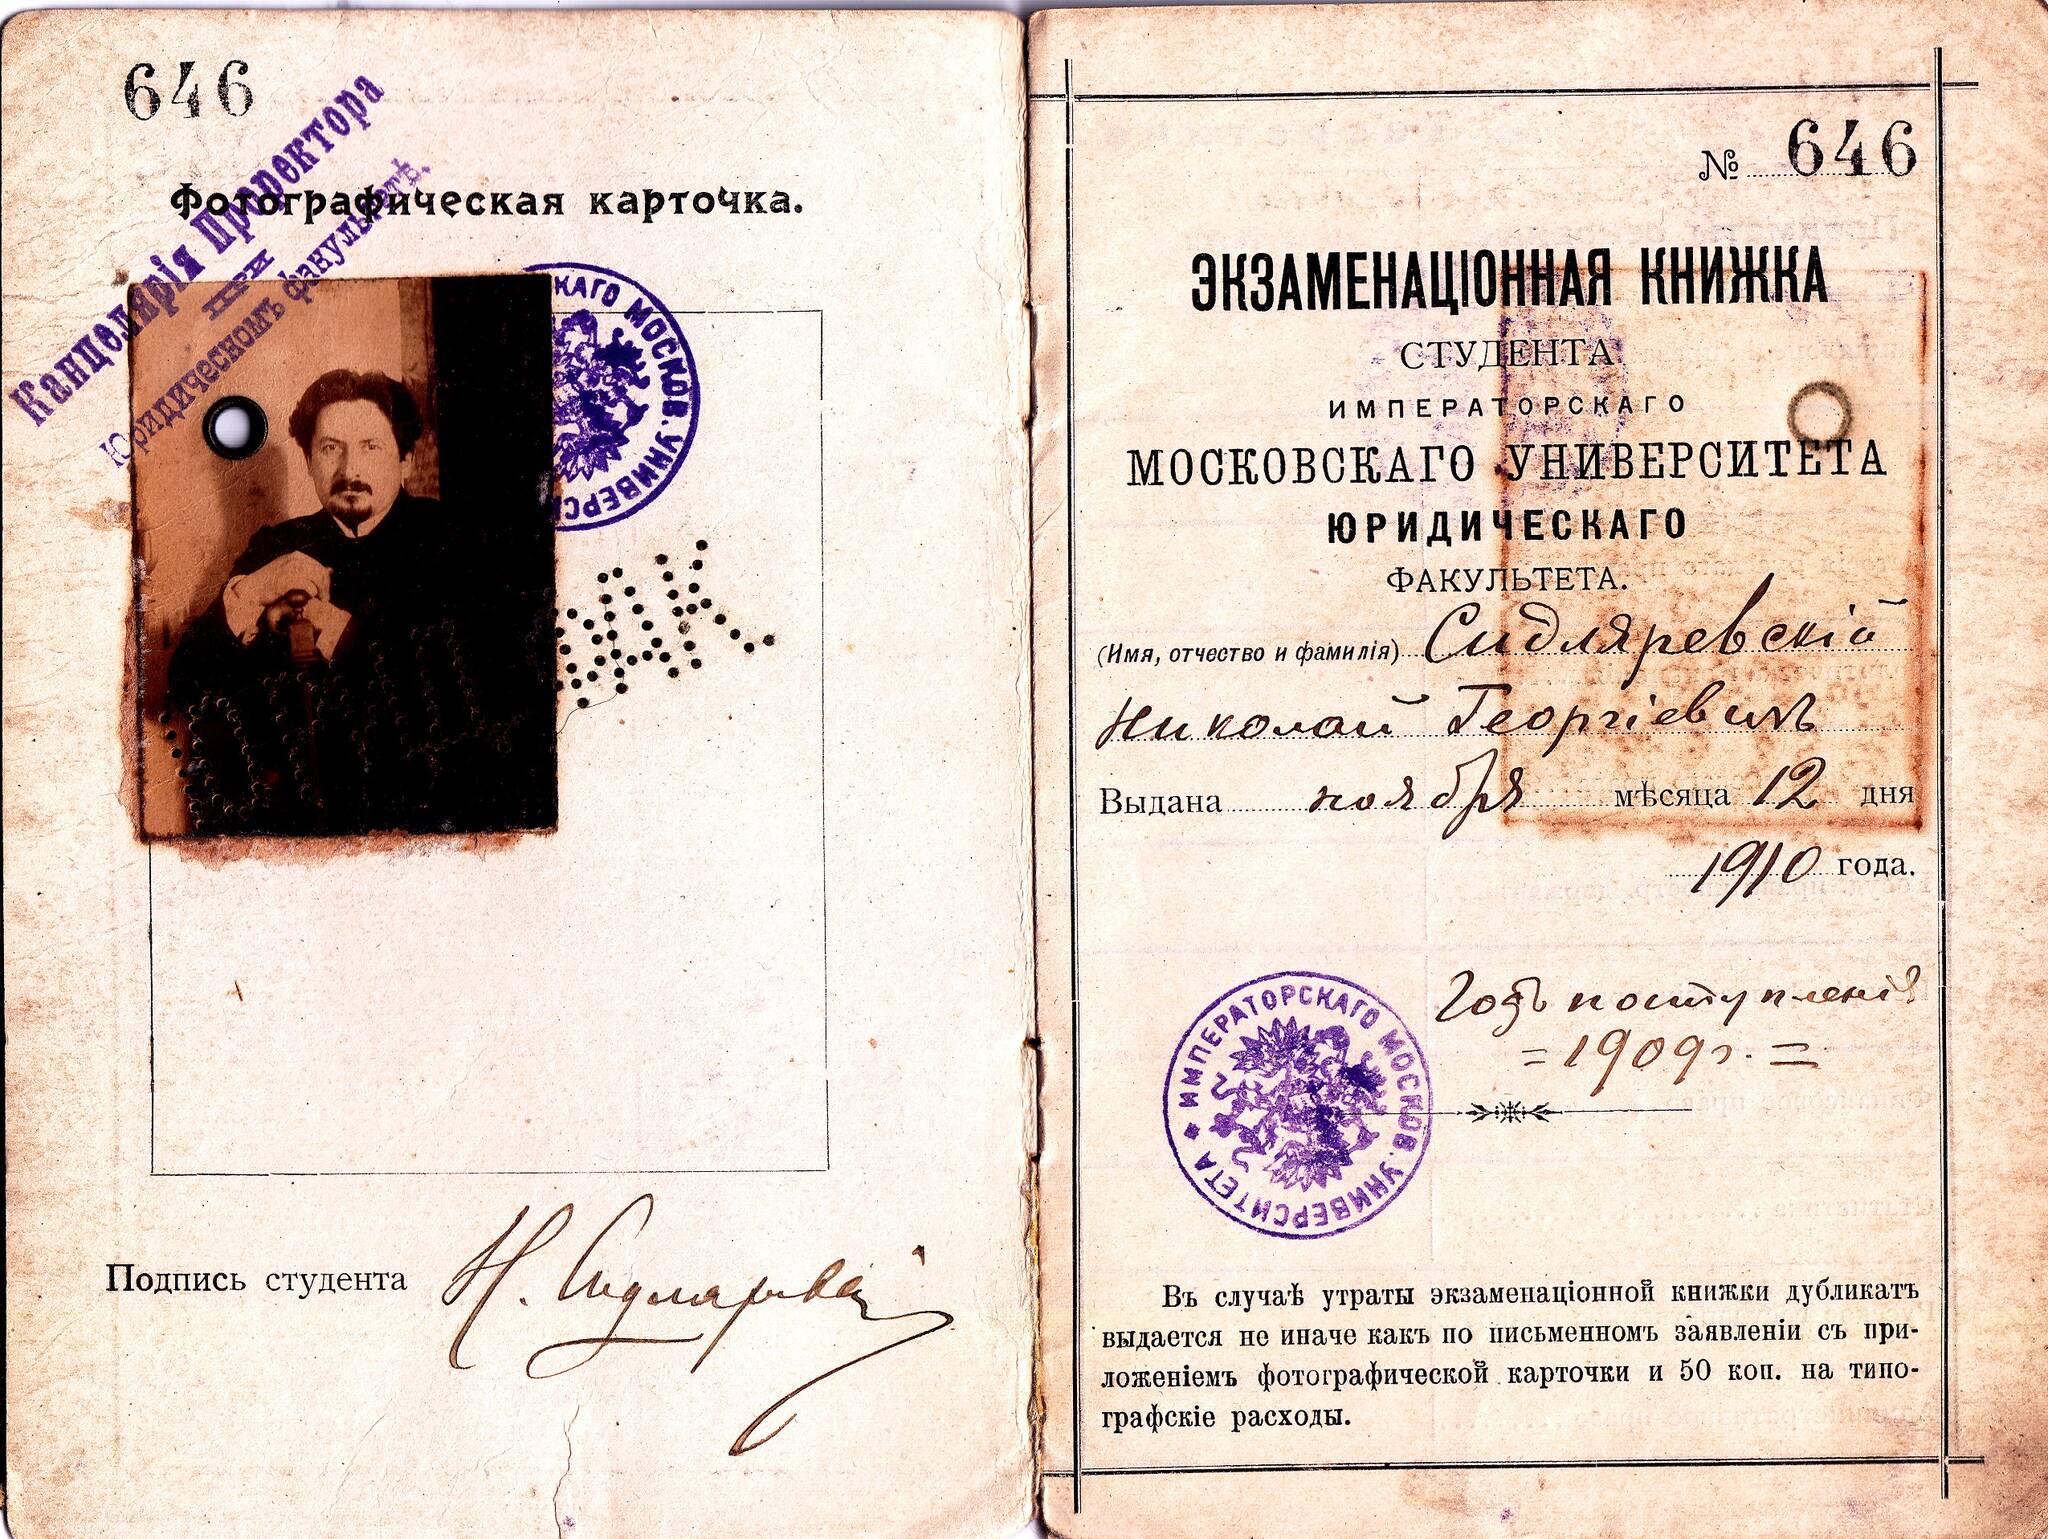 646
Канцелярія Проректора
при
Юридическомъ факультетѣ.
Фотографическая карточка.
КАГО МОСКОВ. УНИВЕРСИ
Подпись студента Н. Сидляревскій
№ 646
ЭКЗАМЕНАЦІОННАЯ КНИЖКА
СТУДЕНТА
ИМПЕРАТОРСКАГО
МОСКОВСКАГО УНИВЕРСИТЕТА
ЮРИДИЧЕСКАГО
ФАКУЛЬТЕТА.
(Имя, отчество и фамилія) Сидляревскій
Николай Георгіевичъ
Выдана ноября мѣсяца 12 дня
1910 года.
Годъ поступленія
=1909г.=
ИМПЕРАТОРСКАГО МОСКОВ. УНИВЕРСИТЕТА
Въ случаѣ утраты экзаменаціонной книжки дубликатъ
выдается не иначе какъ по письменномъ заявленіи съ при-
ложеніемъ фотографической карточки и 50 коп. на типо-
графскіе расходы.